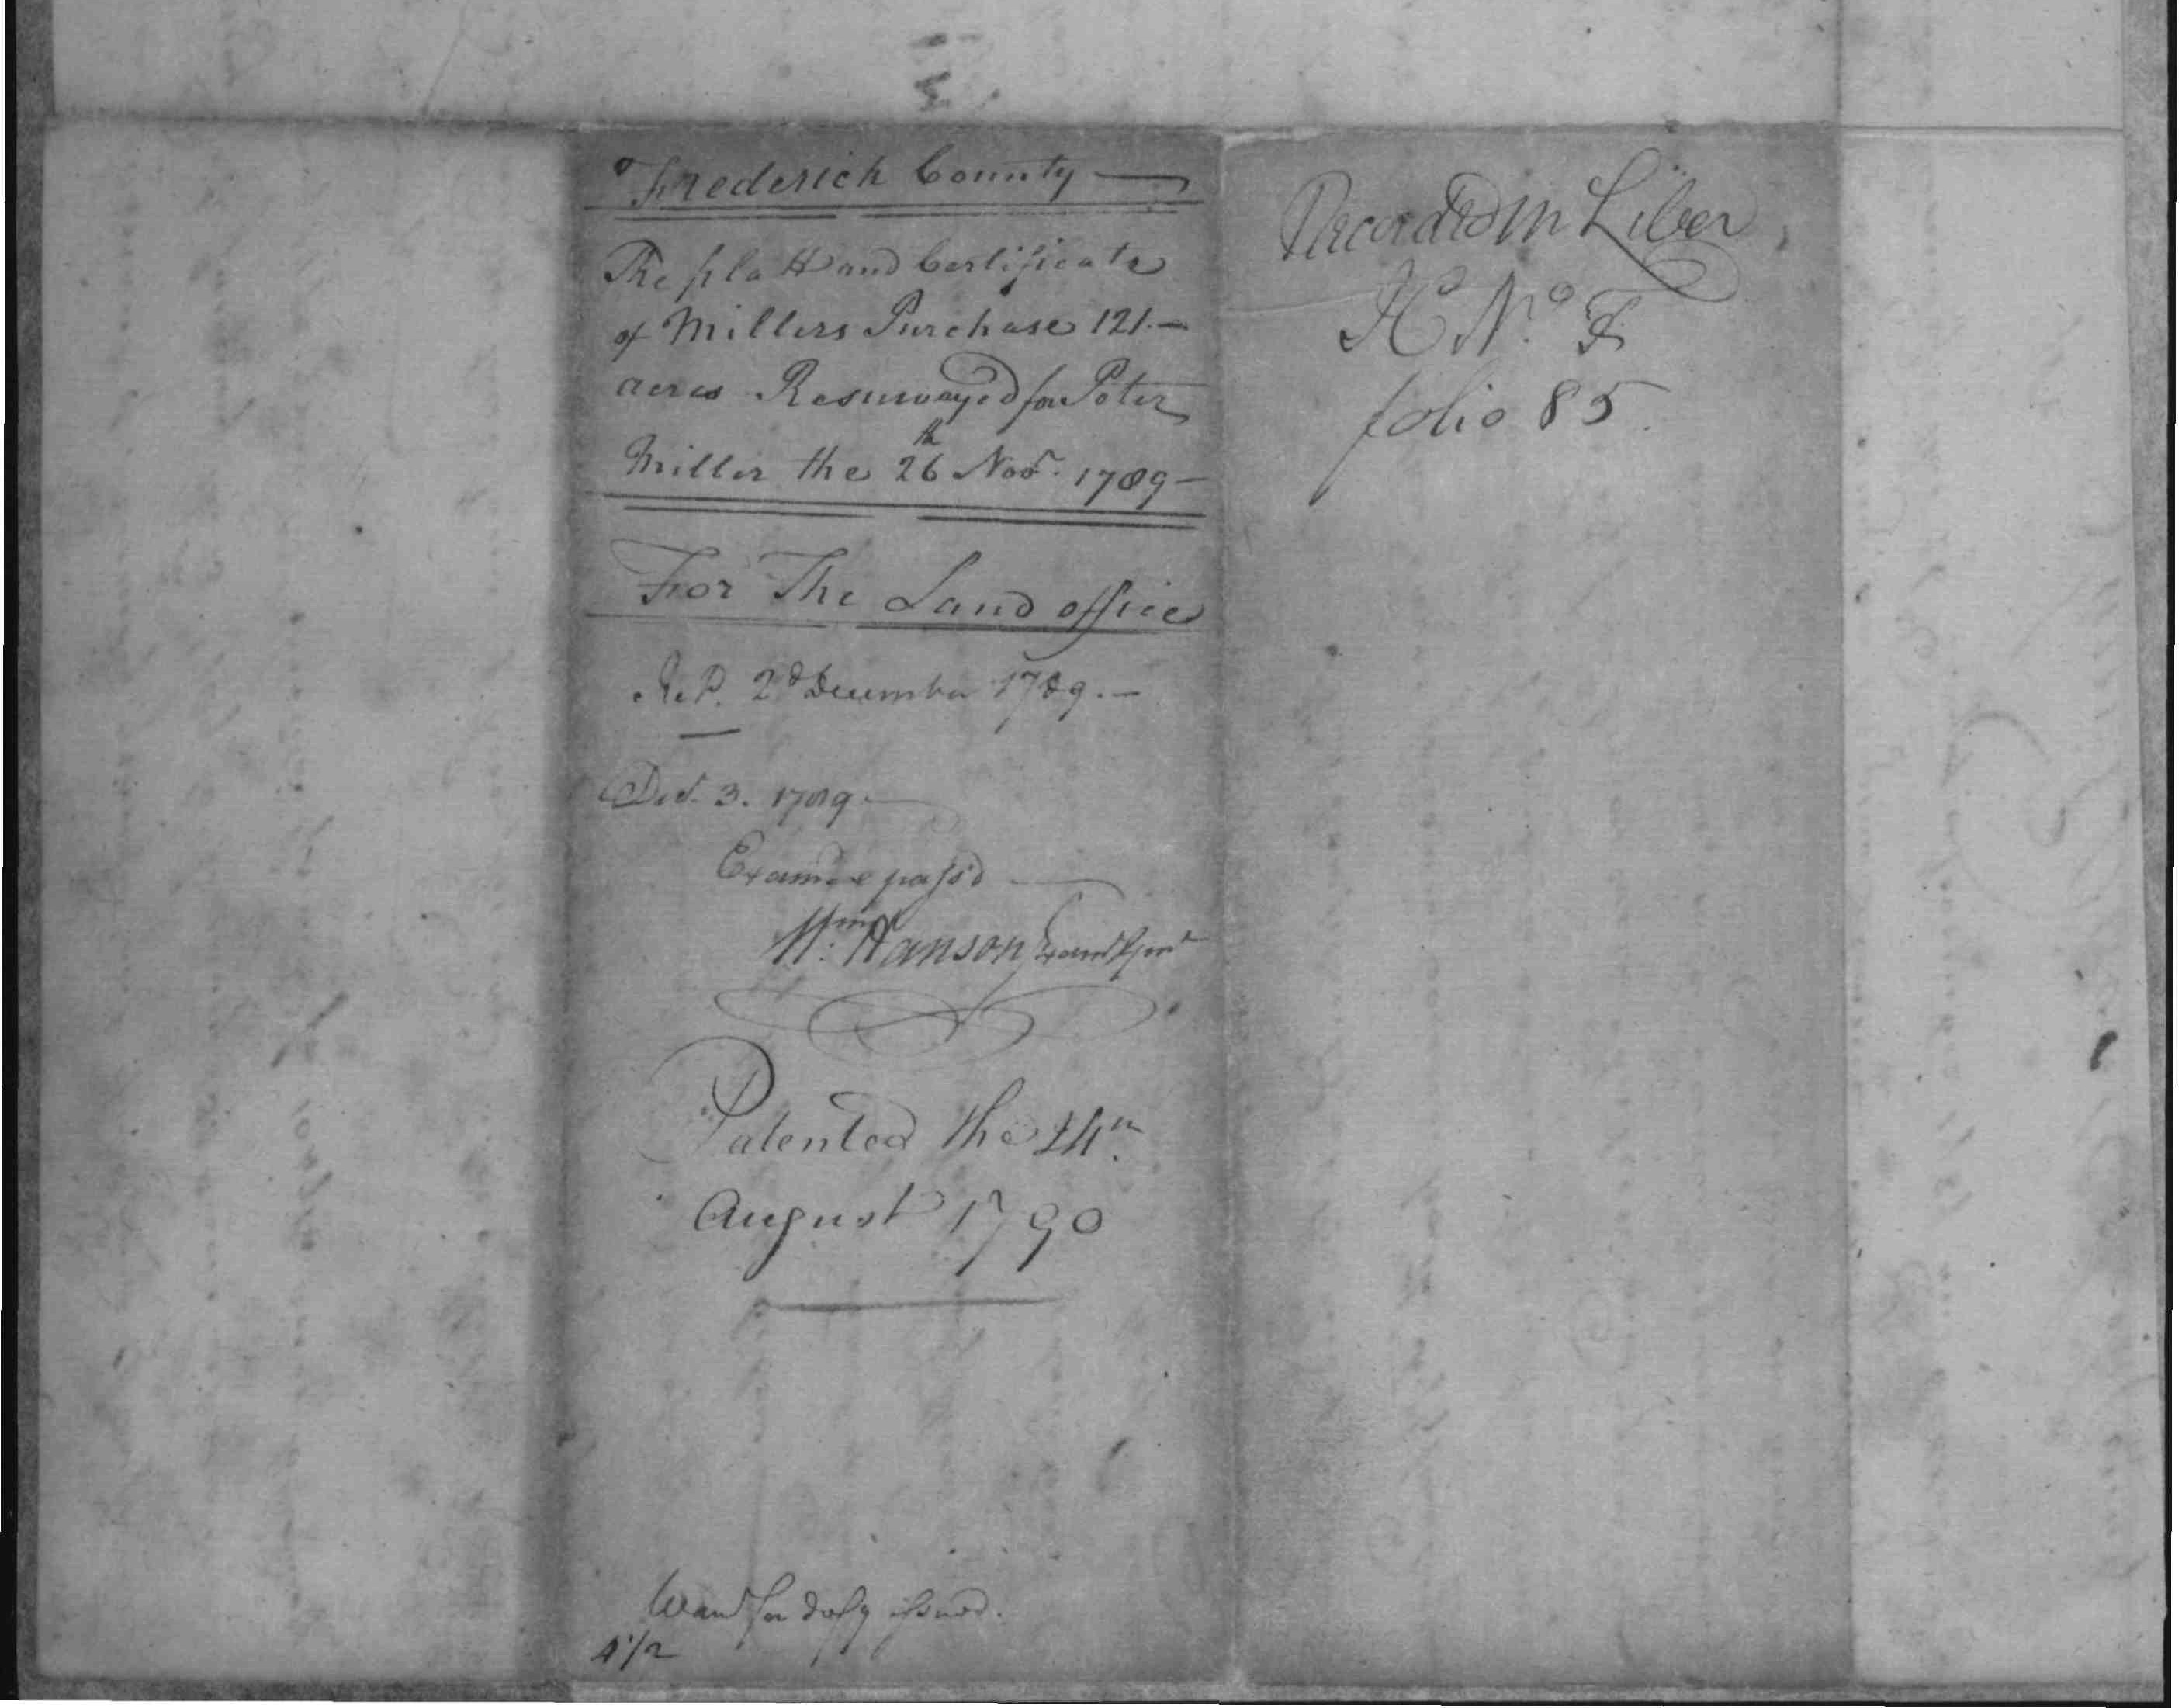 Frederick County
The platt and Certificate
of Millers Purchase 121
acres Resurveyed for Peter
Miller the 26th Novr. 1789
For The Land office
Red. 2d December 1789.
Dec. 3. 1789
Examd. & passd
Wm. Hanson
Patented the 24th.
August 1790
issued.
4 1/2
Recorded in Liber
IC No. F
folio 85.